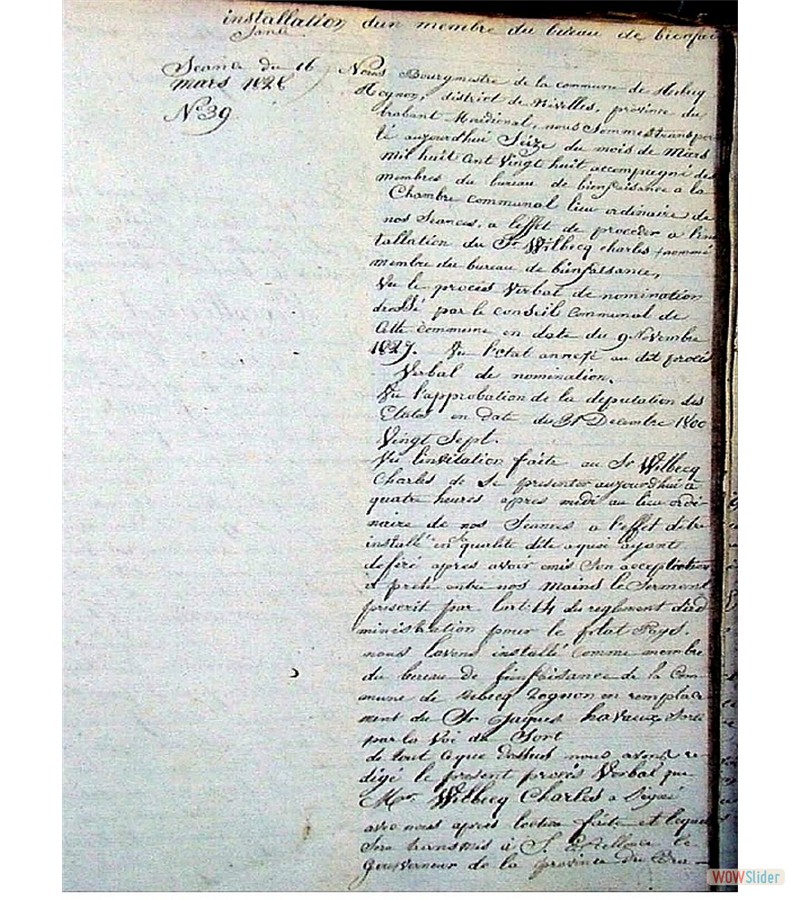 installation d'un membre du bureau de bienfai
sance
Seance du 16
mars 1828
N° 39
Nous Bourgmestre de la commune de Rebecq
Rognon, district de Nivelles, province du
brabant Meridinal, nous Sommes transpor
té aujourdhui Seize du mois de Mars
mil huit Cent Vingt huit accompagné des
membres du bureau de bienfaisance a la
Chambre Communal lieu ordinaire de
nos Seances, a l'effet de proceder a l'ins
tallation du Sr Wilbecq Charles nommé
membre du bureau de bienfaisance,
Vu le procès Verbal de nomination
dressé par le conseil Communal de
Cette Commune en date du 9 Novembre
1827. Vu l'etat annexé au dit procès
Verbal de nomination.
Vu l'approbation de la deputation des
Etats en date du 31 Decembre 1800
Vingt Sept.
Vu l'invitation faite au Sr Wilbecq
Charles de Se presenter aujourdhui a
quatre heures apres midi au lieu ordi
naire de nos Seances a l'effet d'etre
installé en qualité dite a quoi ayant
deferé apres avoir emis Son acceptation
et preté entre nos mains le Serment
prescrit par l'art 14 du reglement d'ad
ministration pour le plat Pays.
nous l'avons installé Comme membre
du bureau de bienfaisance de la Com
mune de Rebecq Rognon en remplace
ment du Sr Jaques havaux Sorti
par la Voi du Sort
de tout a que dessus nous avons re-
digé le present procès Verbal que
Mr Wilbecq Charles a Signé
avec nous apres lecture faite et lequel
Sera transmis à S. Excellence le
Gouverneur de la province du Bra-
WOWSlider